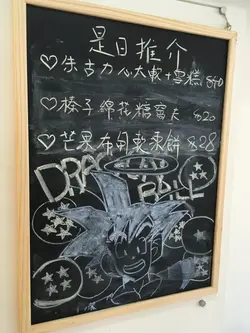 是日推介
♡朱古力心太軟+雪糕
♡榛子綿花糖窩夫 $20
♡芒果布甸軟束餅 $28
DRAGON
BALL